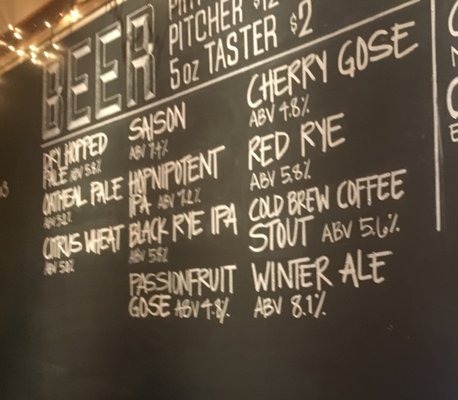 BEER
PITCHER $12
5 OZ TASTER $2
DRY HOPPED
PALE ABV 5.8%
OATMEAL PALE
ABV 5.2%
CITRUS WHEAT
ABV 5.0%
SAISON
ABV 7.4%
HOPNIPOTENT
IPA ABV 7.2%
BLACK RYE IPA
ABV 5.8%
PASSIONFRUIT
GOSE ABV 4.8%
CHERRY GOSE
ABV 4.8%
RED RYE
ABV 5.8%
COLD BREW COFFEE
STOUT ABV 5.6%
WINTER ALE
ABV 8.1%